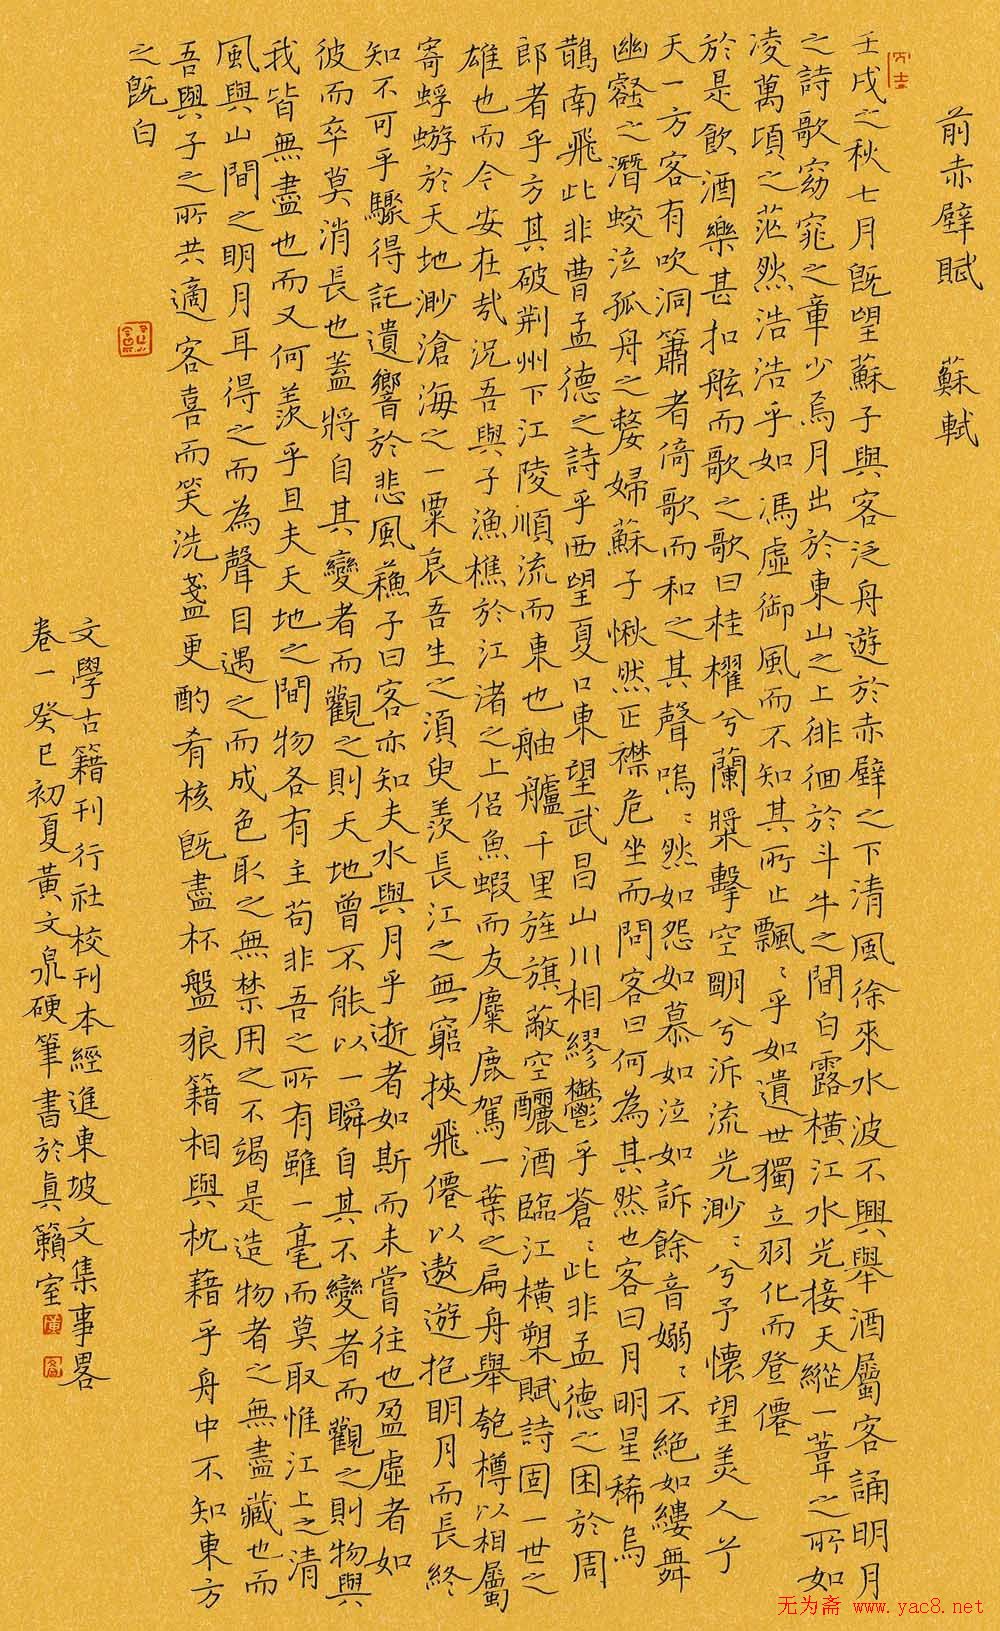 前赤壁賦 蘇軾
壬戌之秋七月既望蘇子與客泛舟遊於赤壁之下清風徐來水波不興舉酒屬客誦明月
之詩歌窈窕之章少焉月出於東山之上徘徊於斗牛之間白露橫江水光接天縱一葦之所如
凌萬頃之茫然浩浩乎如馮虛御風而不知其所止飄〻乎如遺世獨立羽化而登僊
於是飲酒樂甚扣舷而歌之歌曰桂櫂兮蘭槳擊空明兮泝流光渺〻兮予懷望美人兮
天一方客有吹洞簫者倚歌而和之其聲嗚〻然如怨如慕如泣如訴餘音嫋〻不絕如縷舞
幽壑之潛蛟泣孤舟之嫠婦蘇子愀然正襟危坐而問客曰何為其然也客曰月明星稀烏
鵲南飛此非曹孟德之詩乎西望夏口東望武昌山川相繆鬱乎蒼〻此非孟德之困於周
郎者乎方其破荊州下江陵順流而東也舳艫千里旌旗蔽空釃酒臨江橫槊賦詩固一世之
雄也而今安在哉況吾與子漁樵於江渚之上侶魚蝦而友麋鹿駕一葉之扁舟舉匏樽以相屬
寄蜉蝣於天地渺滄海之一粟哀吾生之須臾羨長江之無窮挾飛僊以遨遊抱明月而長終
知不可乎驟得託遺響於悲風蘇子曰客亦知夫水與月乎逝者如斯而未嘗往也盈虛者如
彼而卒莫消長也蓋將自其變者而觀之則天地曾不能以一瞬自其不變者而觀之則物與
我皆無盡也而又何羨乎且夫天地之間物各有主苟非吾之所有雖一毫而莫取惟江上之清
風與山間之明月耳得之而為聲目遇之而成色取之無禁用之不竭是造物者之無盡藏也而
吾與子之所共適客喜而笑洗盞更酌肴核既盡杯盤狼籍相與枕藉乎舟中不知東方
之既白
文學古籍刊行社校刊本經進東坡文集事畧
卷一癸巳初夏黃文泉硬筆書於真籟室
无为斋 www.yac8.net